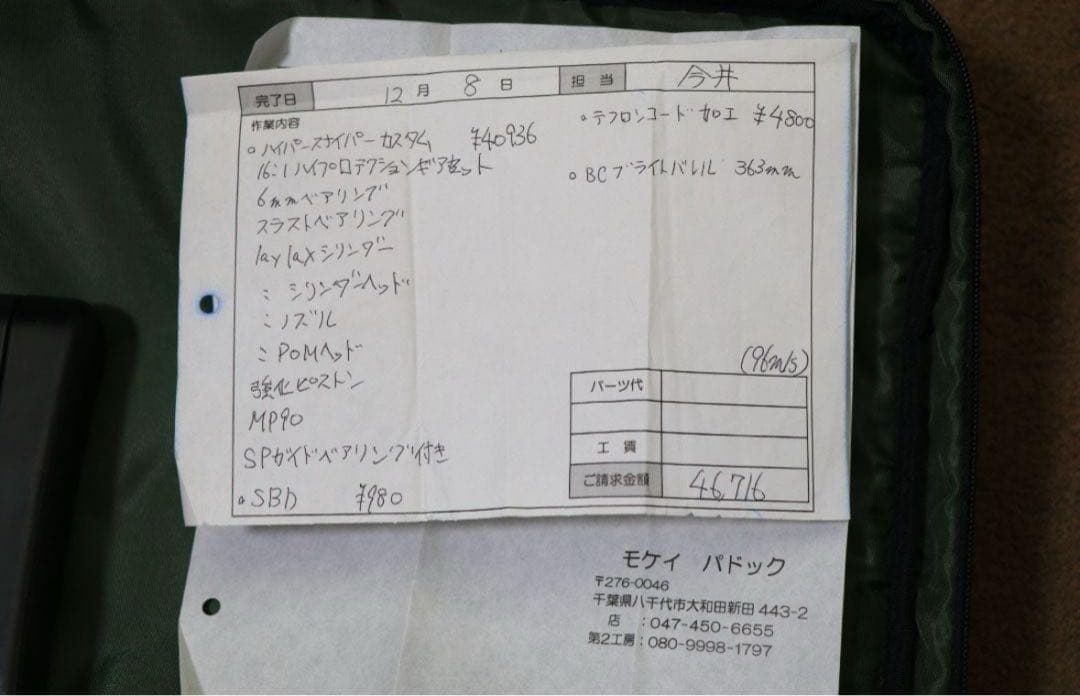 完了日 12月 8日 担当 今井
作業内容
。ハイパースナイパーカスタム ¥40936
16:1ハイプロテクションギアセット
6mmベアリング
スラストベアリング
laylaxシリンダー
〃 シリンダーヘッド
〃 ノズル
〃 POMヘッド
強化ピストン
MP90
SPガイドベアリング付き
。SBD ¥980
。テフロンコード加工 ¥4800
。BCブライトバレル 363mm
(96m/s)
パーツ代
工賃
ご請求金額 46,716
モケイ パドック
〒276-0046
千葉県八千代市大和田新田 443-2
店 :047-450-6655
第2工房:080-9998-1797